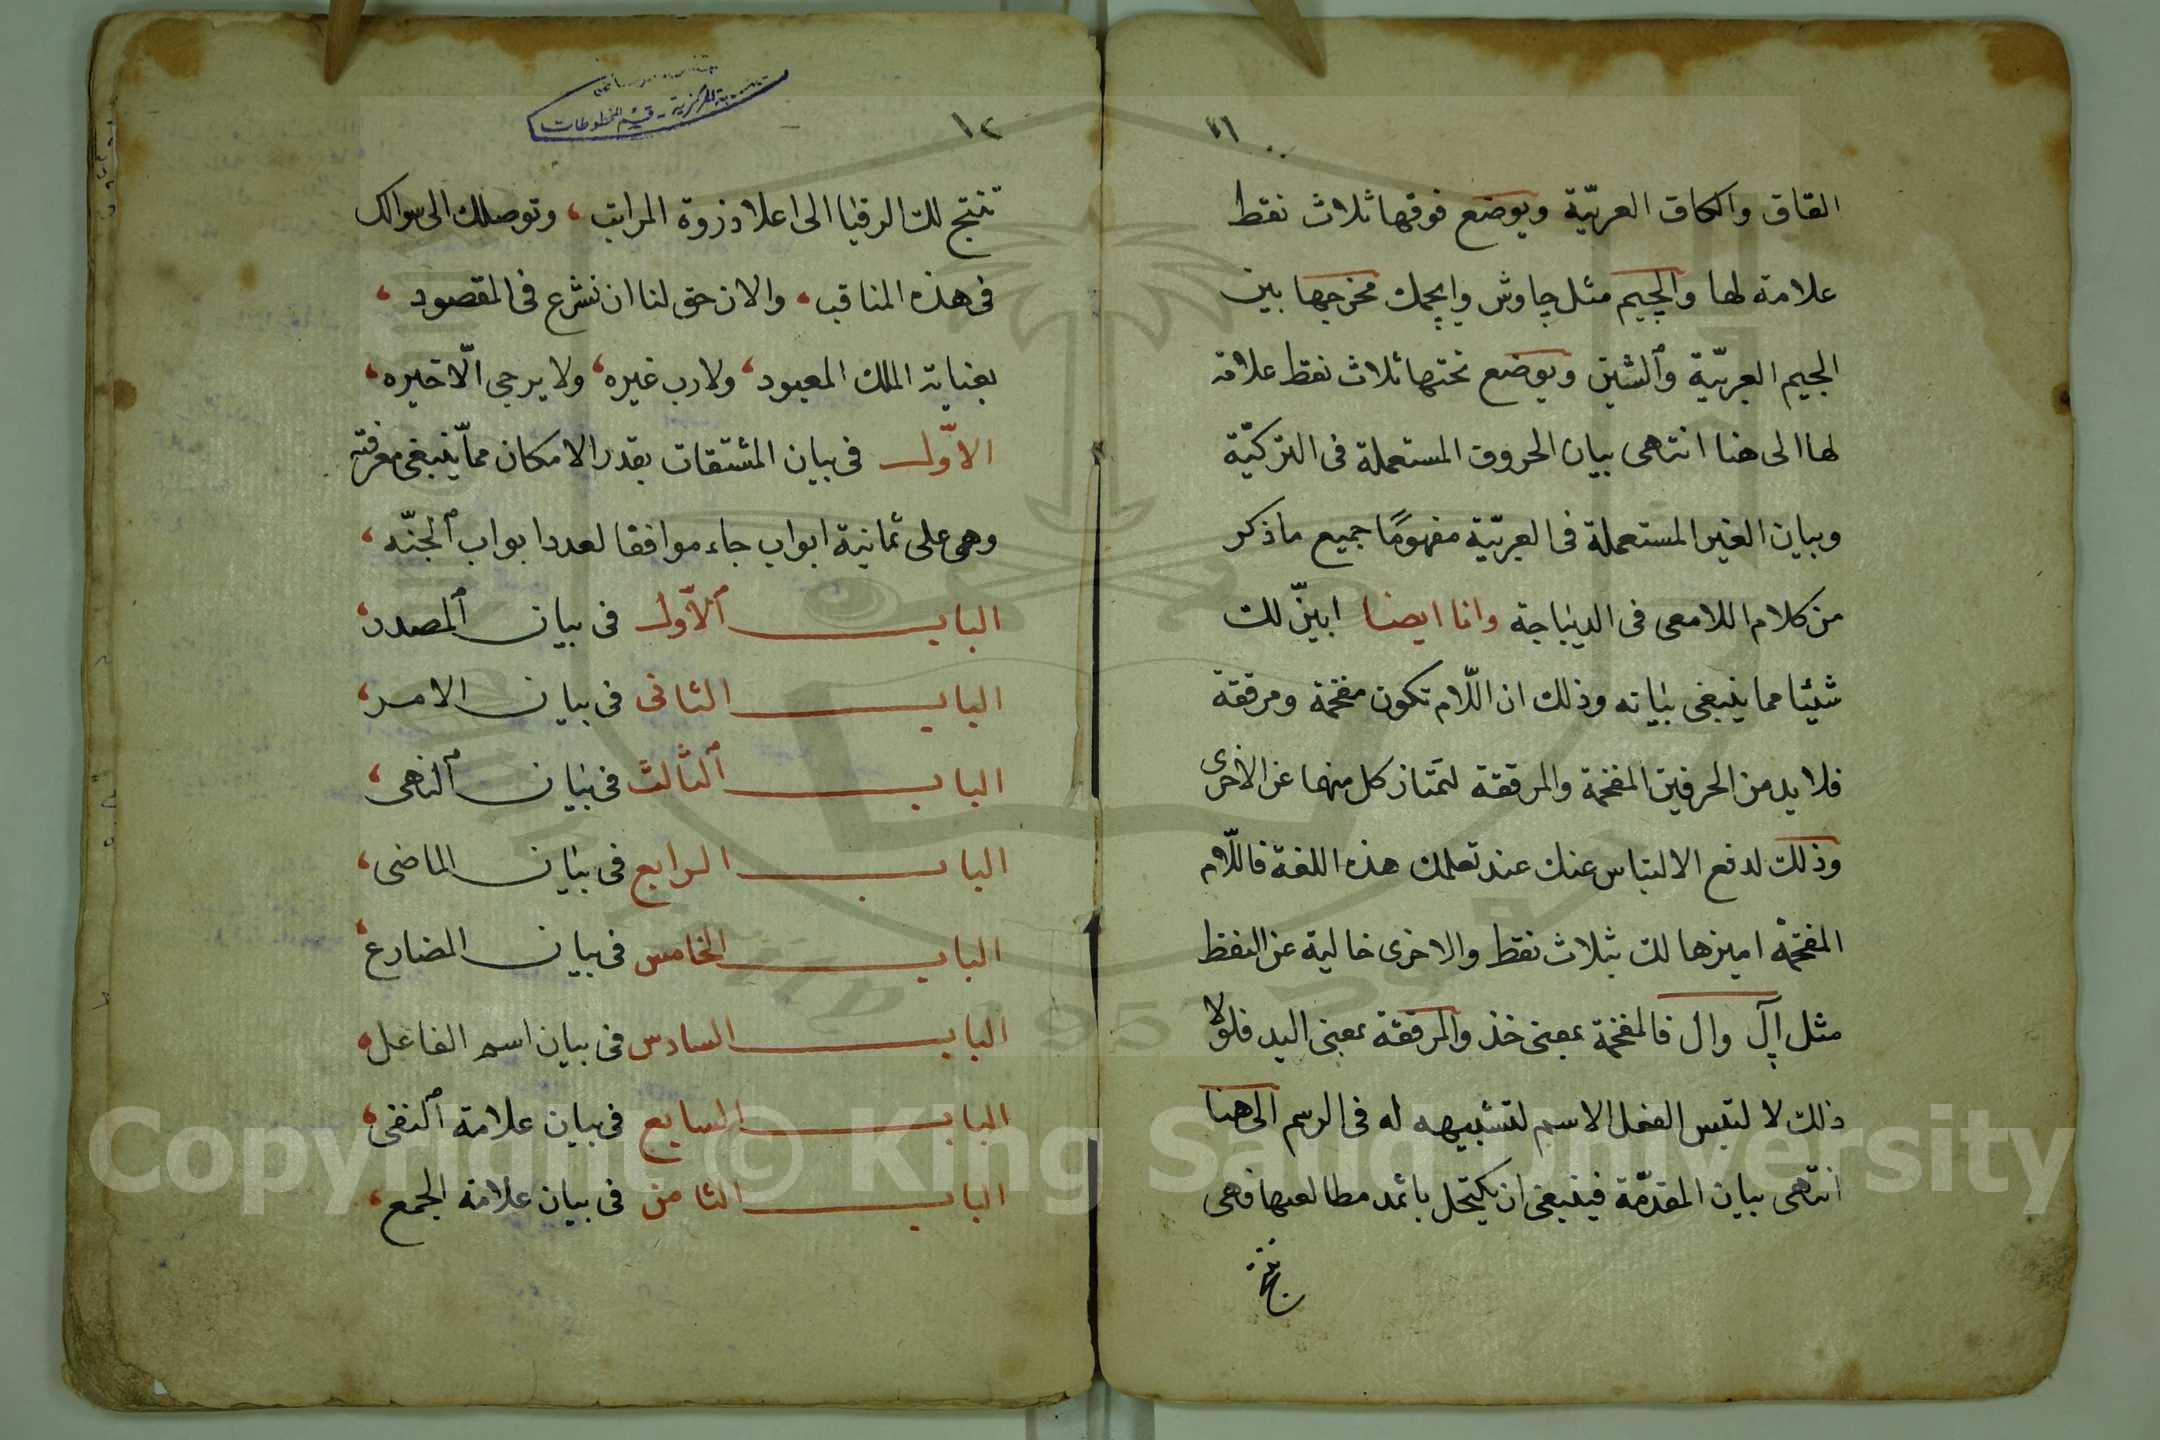 ١١
القاق والكاق العربيّة ويوضع فوقها ثلاث نقط
علامة لها والچيم مثل چاوش وايچمك مخرجها بين
الجيم العربيّة والشين ويوضع تحتها ثلاث نقط علامة
لها الى هنا انتهى بيان الحروف المستعملة فى التركيّة
وبيان الغير المستعملة فى العربيّة مفهومًا جميع ما ذكر
من كلام اللامعى فى الديباجة وانا ايضا ابيّن لك
شيئا مما ينبغى بيانه وذلك ان اللّام تكون مفخمة ومرققة
فلا بد من الحرفين المفخمة والمرققة لتمتاز كل منها عن الاخرى
وذلك لدفع الالتباس عنك عند تعلمك هذه اللغة فاللّام
المفخمة اميزها لك بثلاث نقط والاخرى خالية عن النقط
مثل آل وال فالمفخمة بمعنى خذ والمرققة بمعنى اليد فلولا
ذلك لا لتبس الفعل الاسم لتشبيهه له فى الرسم الى هنا
انتهى بيان المقدّمة فينبغى ان يكتحل باثمد مطالعها فهى
تنتج
١٢
المركزية - قسم المخطوطات
تنتج لك الرقيا الى اعلا دزوة المراتب، وتوصلك الى سوالك
فى هذه المناقب، والان حق لنا ان نشرع فى المقصود،
بعناية الملك المعبود، ولا رب غيره، ولا يرجى الّا خيره،
الاوّل فى بيان المشتقات بقدر الامكان ممّا ينبغى معرفته
وهى على ثمانية ابواب جاء موافقا لعدد ابواب الجنّه،
الباب الاوّل فى بيان المصدر،
الباب الثانى فى بيان الامر،
الباب الثالث فى بيان النهى،
الباب الرابع فى بيان الماضى،
الباب الخامس فى بيان المضارع،
الباب السادس فى بيان اسم الفاعل،
الباب السابع فى بيان علامة النفى،
الباب الثامن فى بيان علامة الجمع،
Copyright © King Saud University
1957